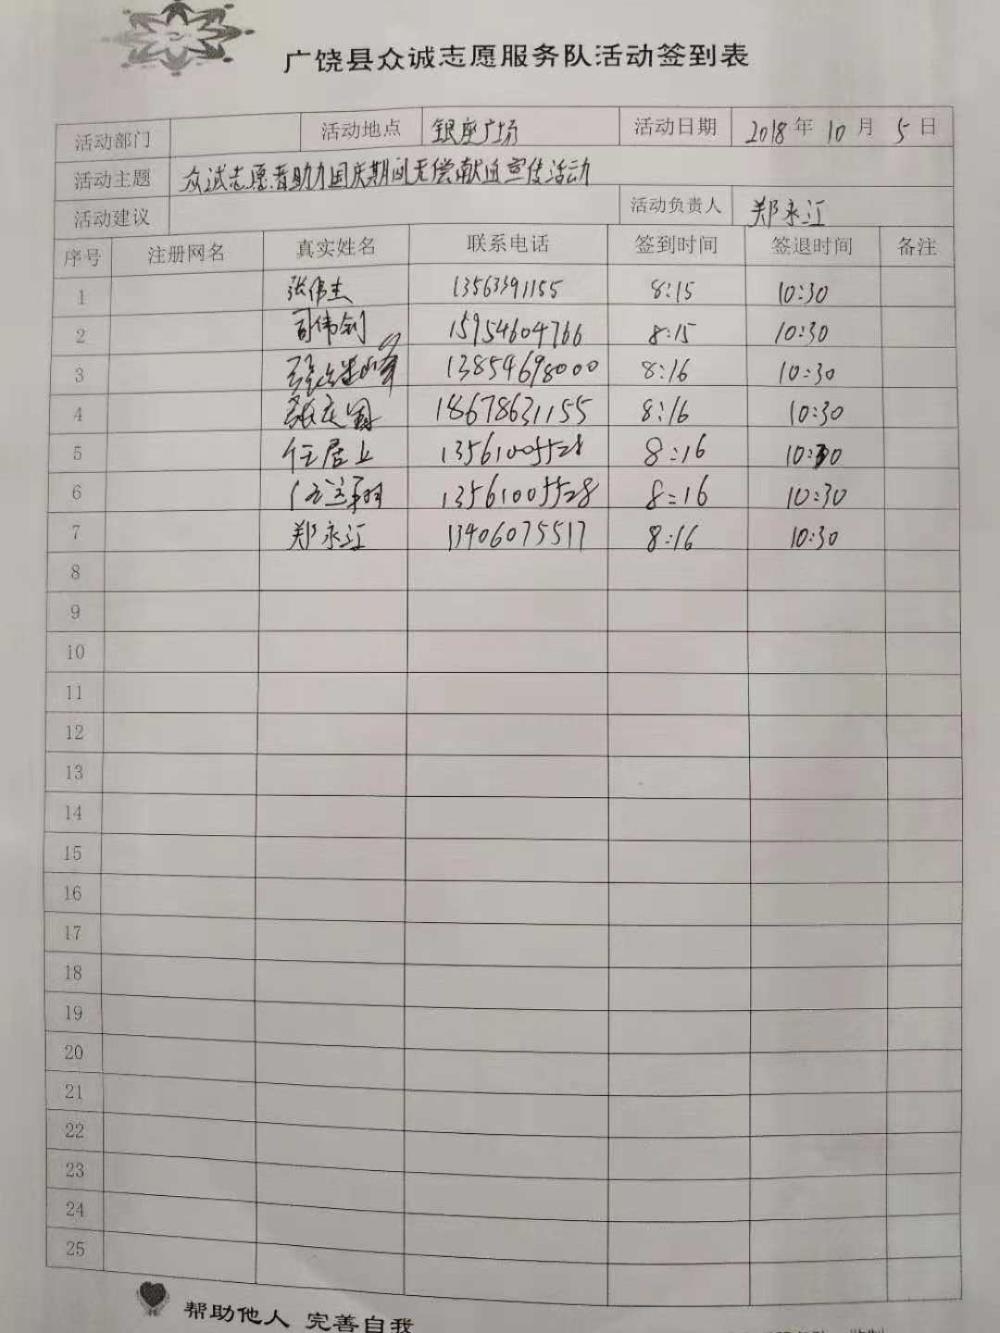 广饶县众诚志愿服务队活动签到表
活动部门 活动地点 银座广场 活动日期 2018年10月5日
活动主题 众诚志愿者助力国庆期间无偿献血宣传活动
活动建议 活动负责人 郑永江
序号 注册网名 真实姓名 联系电话 签到时间 签退时间 备注
1 张伟杰 13563391155 8:15 10:30
2 司伟剑 15954604766 8:15 10:30
3 13854698000 8:16 10:30
4 18678631155 8:16 10:30
5 任居上 13561005528 8:16 10:30
6 13561005528 8:16 10:30
7 郑永江 13406075517 8:16 10:30
8
9
10
11
12
13
14
15
16
17
18
19
20
21
22
23
24
25
帮助他人 完善自我